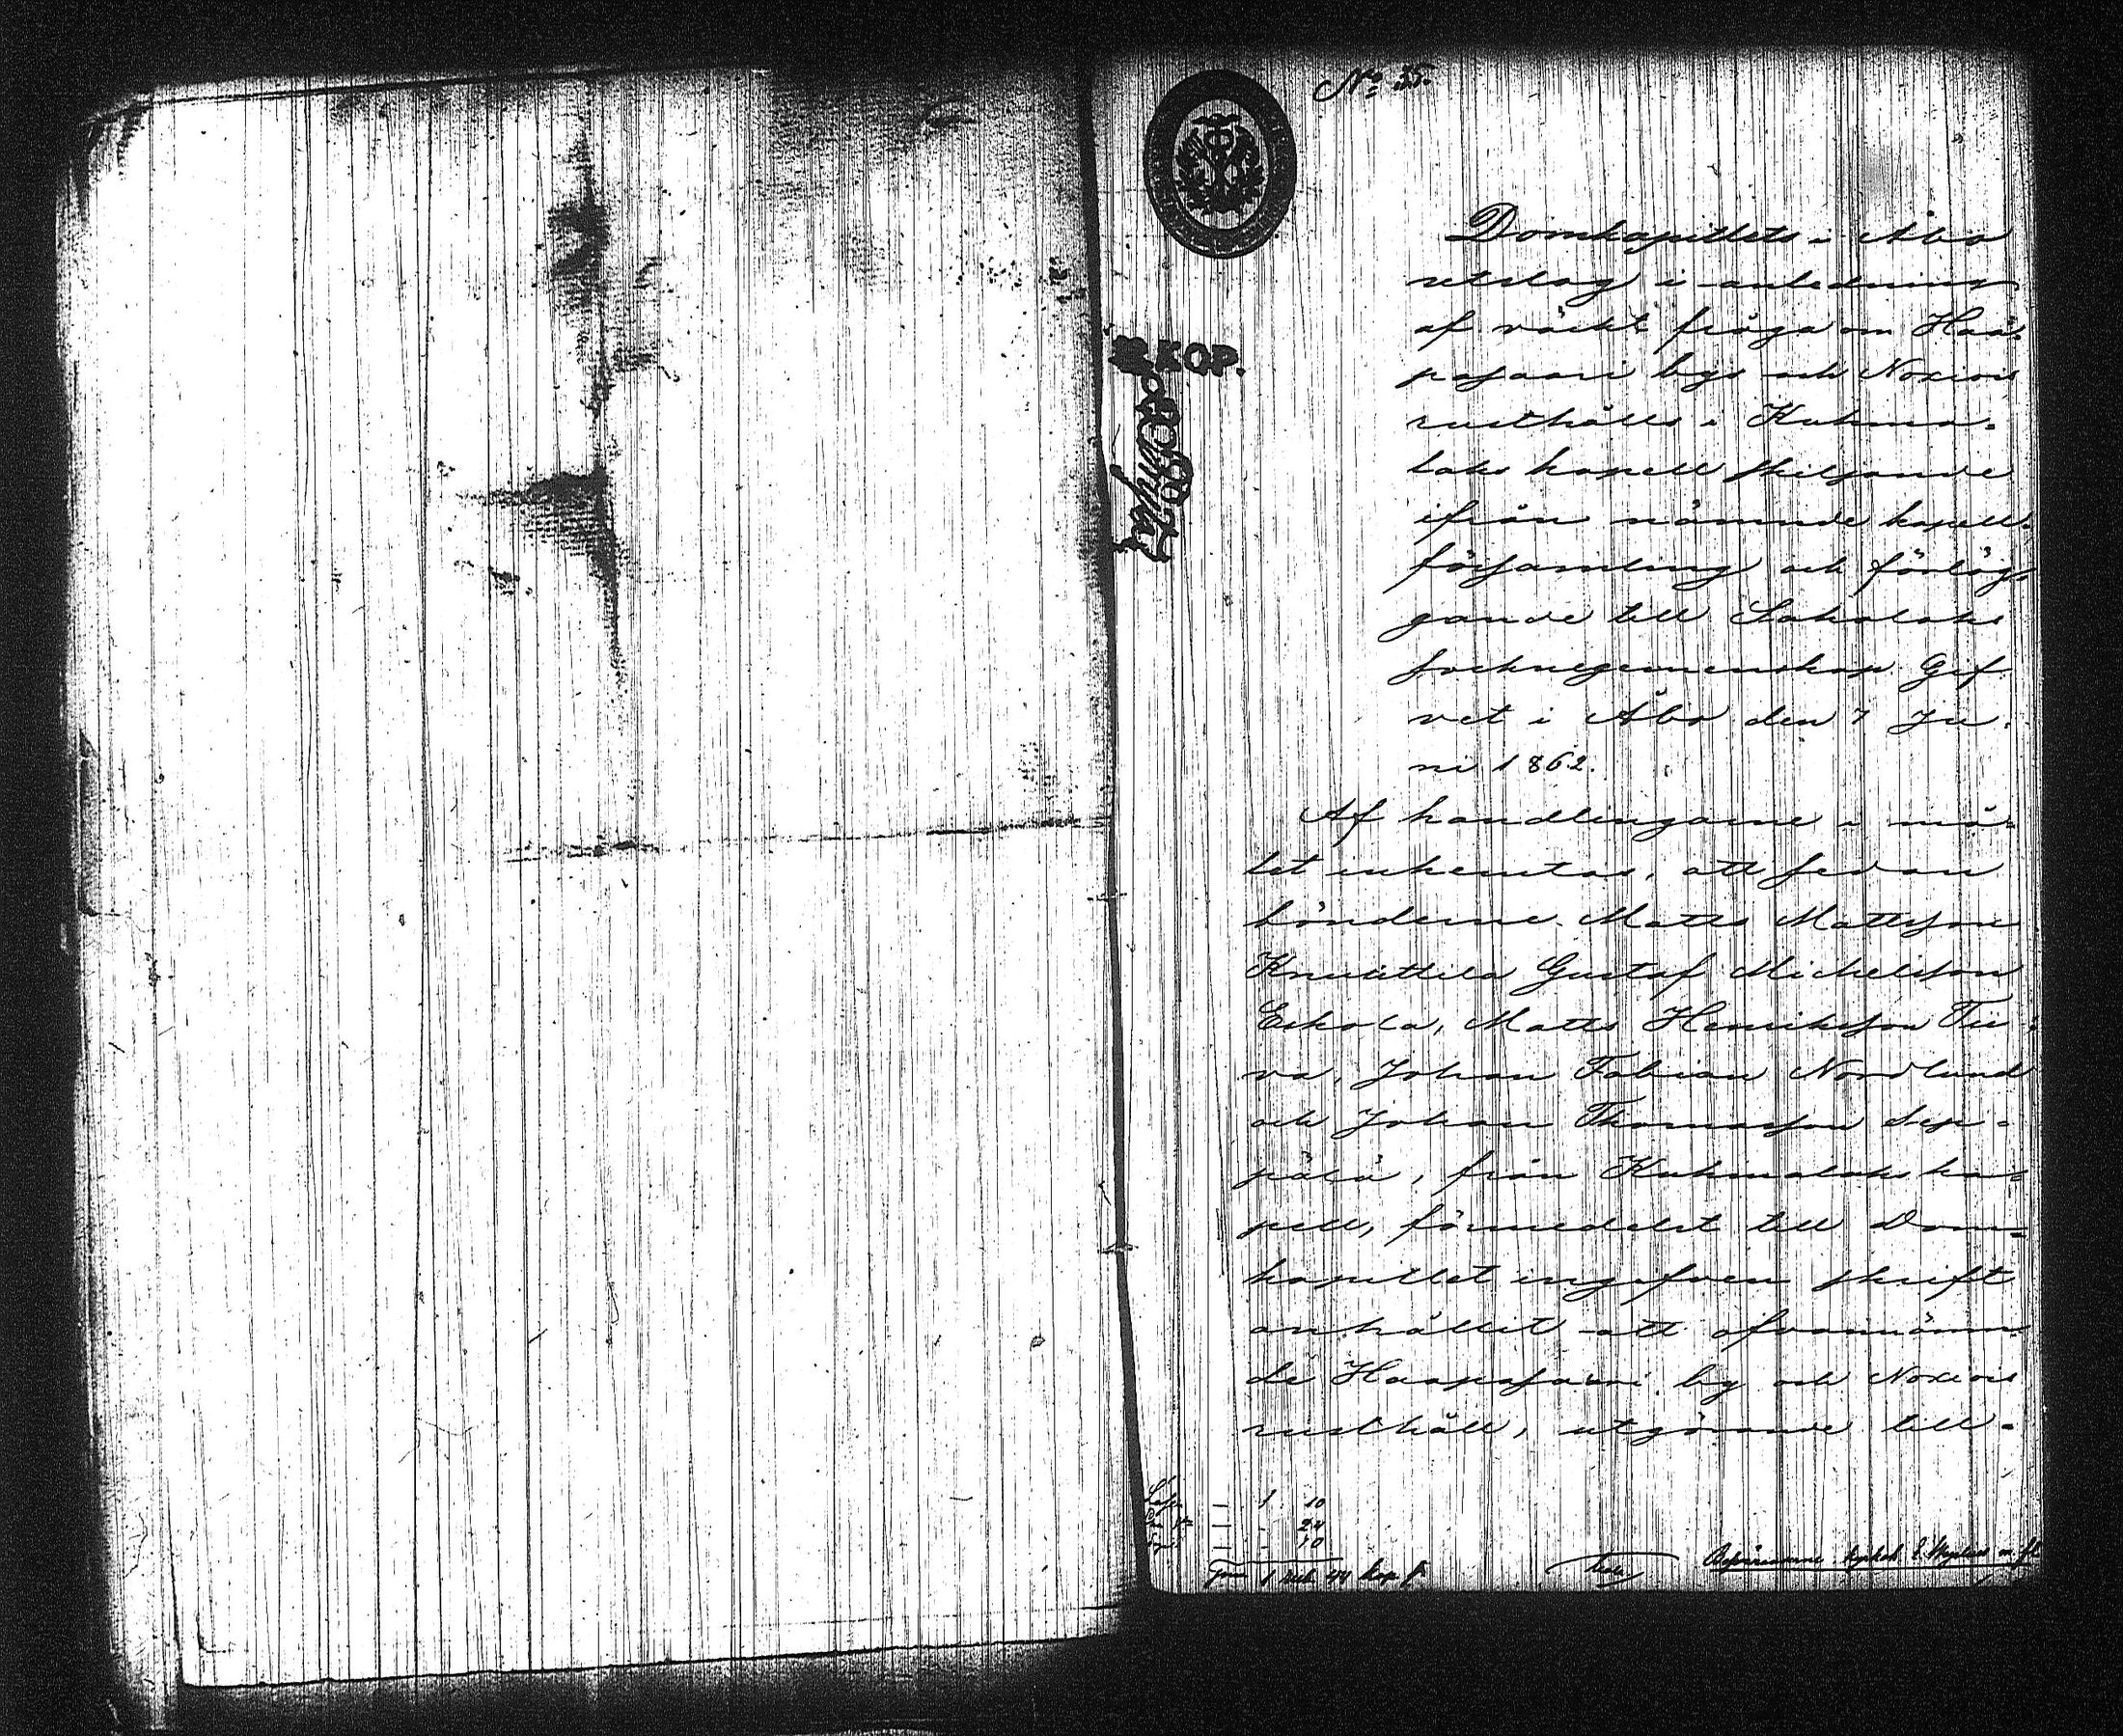 No 35.
Domkapitlets i Åbo
utslag i anledning
af väckt fråga om Haa-
pasaari bys och Noxiois
rusthålls i Kuhma-
laks kapell skiljande
ifrån nämnde kapell-
församling och förläg-
gande till Sahalaks
socknegemenskap. Gif-
vet i Åbo den 7 Ju-
ni 1862.
KOP.
Af handlingarne i må-
let inhemtas, att sedan
bönderne Matts Mattsson
Knuuttila Gustaf Michelsson
Eskola, Matts Henriksson Tii-
va, Johan Fabian Nordlund
och Johan Thomasson Sep-
pälä, från Kuhmalaks ka-
pell, förmedelst till Dom-
kapitlet ingifven skrift
anhållit att ofvannämn-
de Haapasaari by och Noxiois
rusthåll, utgörande till-
1 10
24
10
1 Rub. 44 kop. S